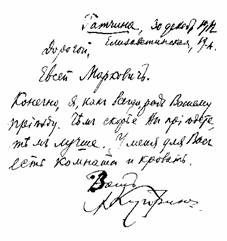 Гатчина, 30 декабр. 1912
Елизаветинская, 19а.
Дорогой,
Евсей Маркович.
Конечно, я, какъ всегда рад Вашему
пріѣзду. Чѣмъ скорѣе Вы пріѣдете,
тѣмъ лучше. У меня для Васъ
есть комната и кровать.
Вашъ
АКупринъ